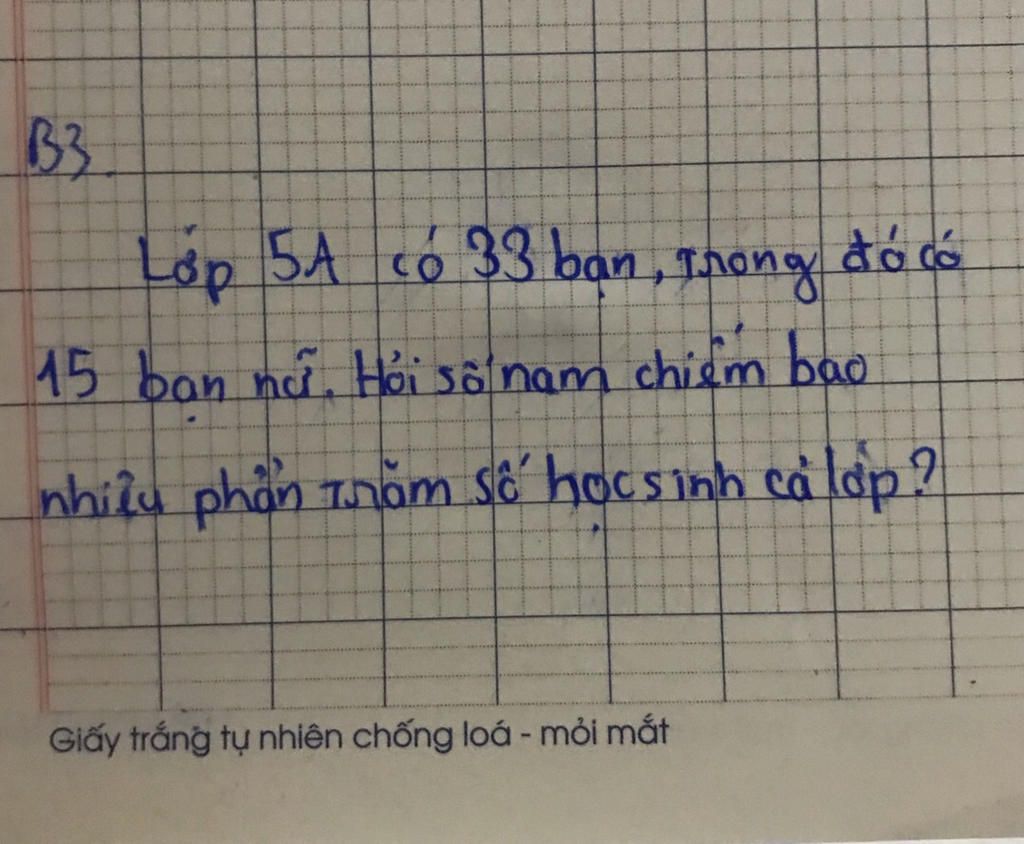 B3.
Lớp 5A có 33 bạn, trong đó có
15 bạn nữ. Hỏi số nam chiếm bao
nhiêu phần trăm số học sinh cả lớp?
Giấy trắng tự nhiên chống loá - mỏi mắt